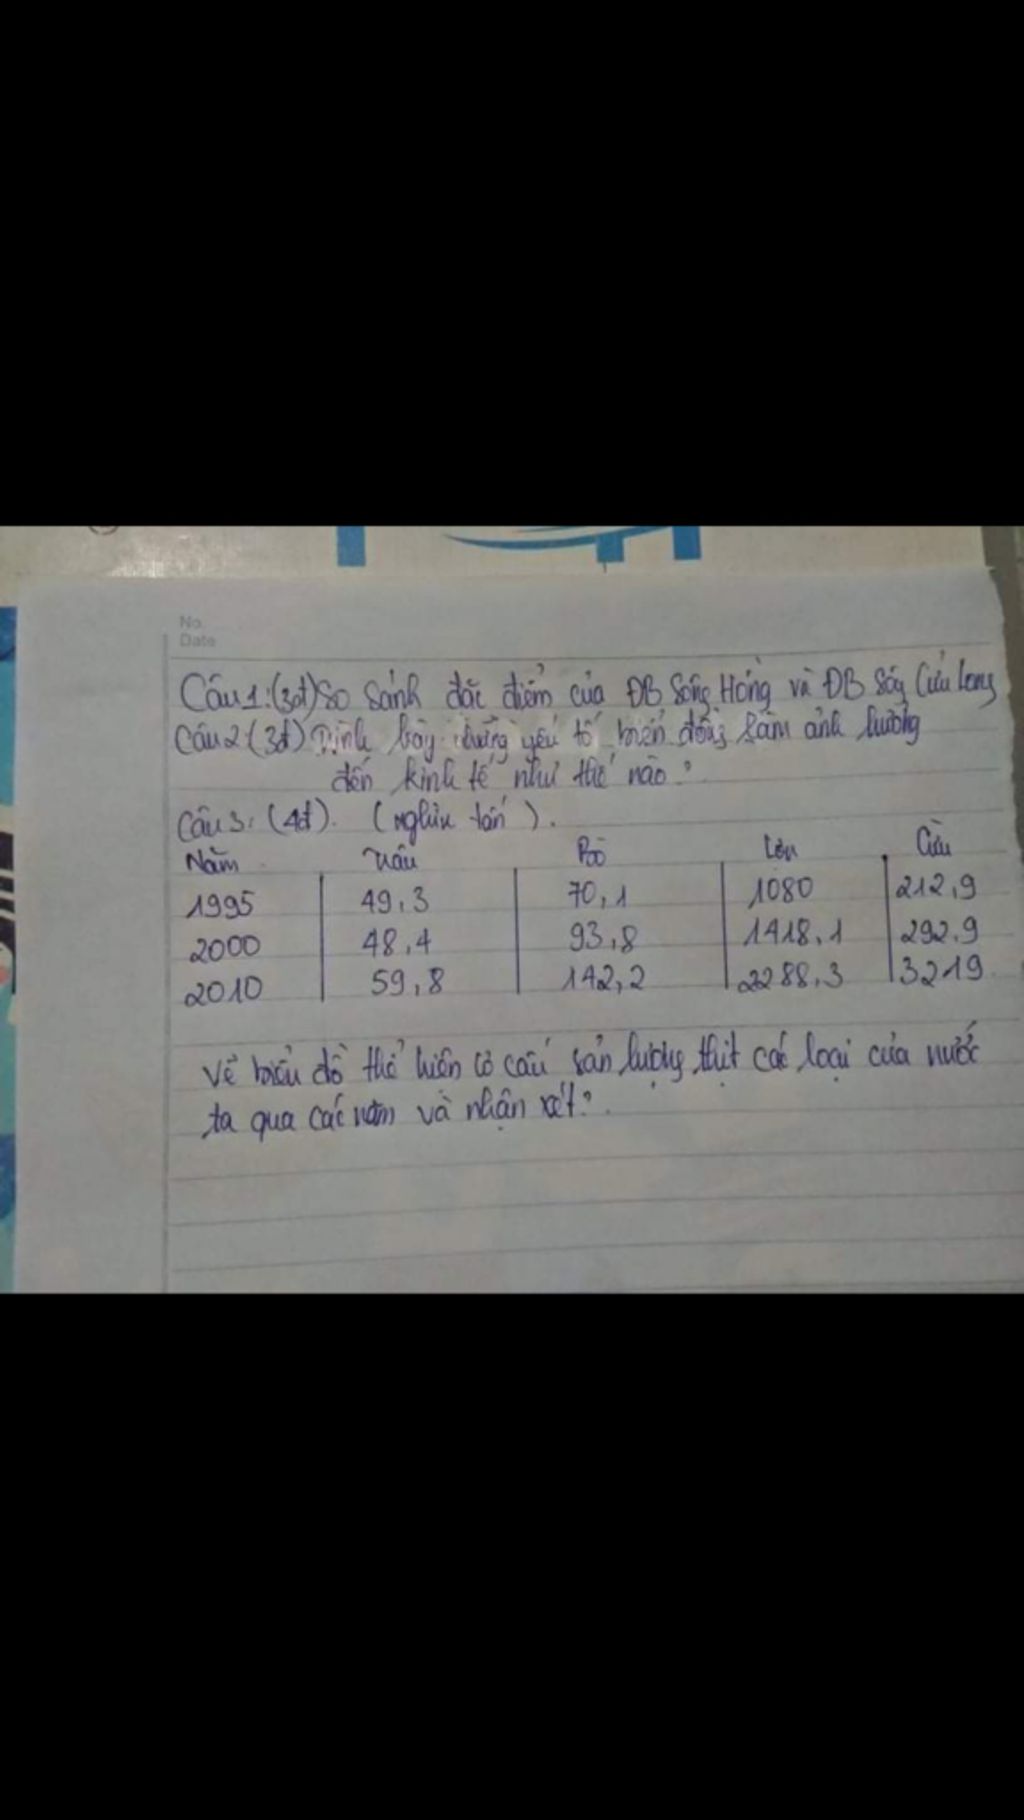 No.
Date
Câu 1: (3đ) So sánh đặc điểm của ĐB Sông Hồng và ĐB Sông Cửu Long
Câu 2: (3đ) Trình bày những yếu tố biển đông làm ảnh hưởng
đến kinh tế như thế nào?
Câu 3: (4đ). (nghìn tấn).
Năm Trâu Bò Lợn
1995 49,3 70,1 1080 212,9
2000 48,4 93,8 1418,1 292,9
2010 59,8 142,2 2288,3 3219
Vẽ biểu đồ thể hiện cơ cấu sản lượng thịt các loại của nước
ta qua các năm và nhận xét?